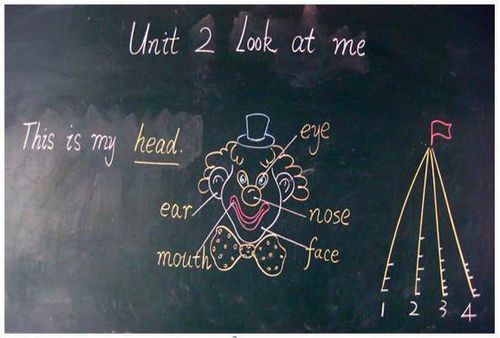 Unit 2 Look at me
This is my head.
eye
ear
nose
mouth
face
1 2 3 4